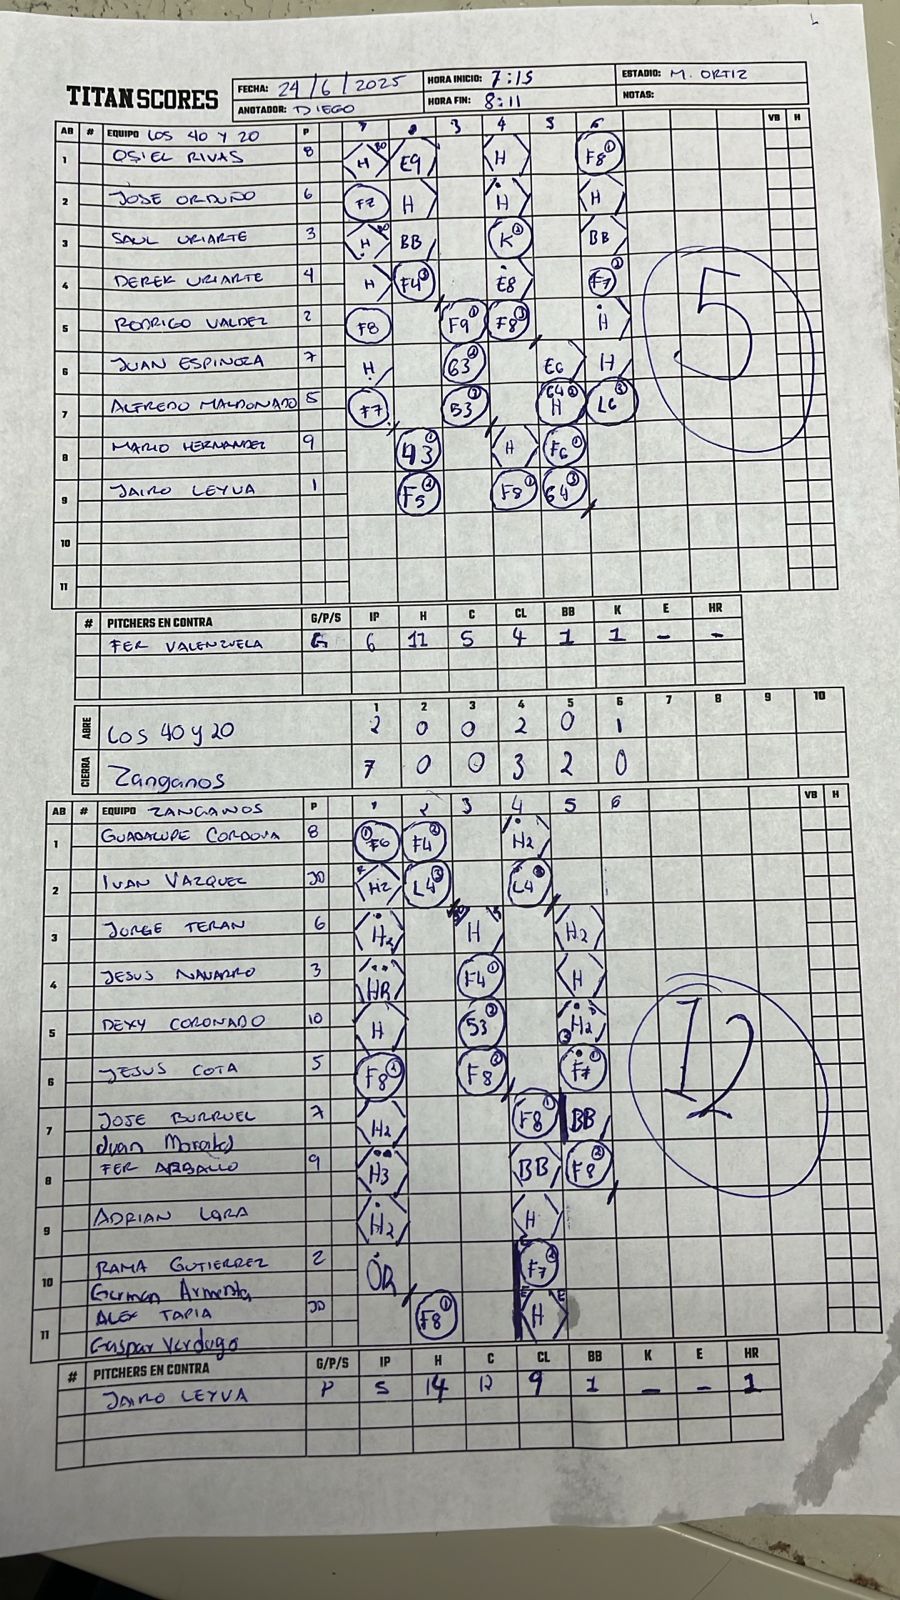 TITANSCORES FECHA: 24/6/2025 HORA INICIO: 7:15 ESTADIO: M. ORTIZ
ANOTADOR: DIEGO HORA FIN: 8:11 NOTAS:
AB # EQUIPO LOS 40 Y 20 P 1 2 3 4 5 6 VB H
1 OSIEL RIVAS 8 H E9 H F8 1
2 JOSE ORDUÑO 6 F2 H H H
3 SAUL URIARTE 3 H BB K 2 BB
4 DEREK URIARTE 4 H F4 3 E8 F7 2
5 RODRIGO VALDEZ 2 F8 F9 1 F8 3 H
6 JUAN ESPINOZA 7 H 63 2 E6 H
7 ALFREDO MALDONADO 5 F7 53 3 64 H L6 3
8 MARIO HERNANDEZ 9 43 1 H F6 1
9 JAIRO LEYVA 1 F5 2 F8 1 64 3
10
11
5
# PITCHERS EN CONTRA G/P/S IP H C CL BB K E HR
FER VALENZUELA G 6 12 5 4 1 1 - -
1 2 3 4 5 6 7 8 9 10
ABRE Los 40 y 20 2 0 0 2 0 1
CIERRA Zanganos 7 0 0 3 2 0
AB # EQUIPO ZANGANOS P 1 2 3 4 5 6 VB H
1 GUADALUPE CORDOVA 8 1 F6 F4 2 H2
2 IVAN VAZQUEZ JD H2 L4 3 L4 3
3 JORGE TERAN 6 H2 H H2
4 JESUS NAVARRO 3 HR F4 1 H
5 DEXY CORONADO 10 H 53 2 H2
6 JESUS COTA 5 F8 2 F8 3 F7 1
7 JOSE BURRUEL 7 H2 F8 1 BB
Juan
8 FER ARBALLO 9 H3 BB F8 2
9 ADRIAN LARA H2 H
10 RAMA GUTIERREZ 2 OR F7 2
German Armenta
11 ALEX TAPIA JD F8 1 H
Gaspar Verdugo
12
# PITCHERS EN CONTRA G/P/S IP H C CL BB K E HR
JAIRO LEYVA P 5 14 12 9 1 - - 1